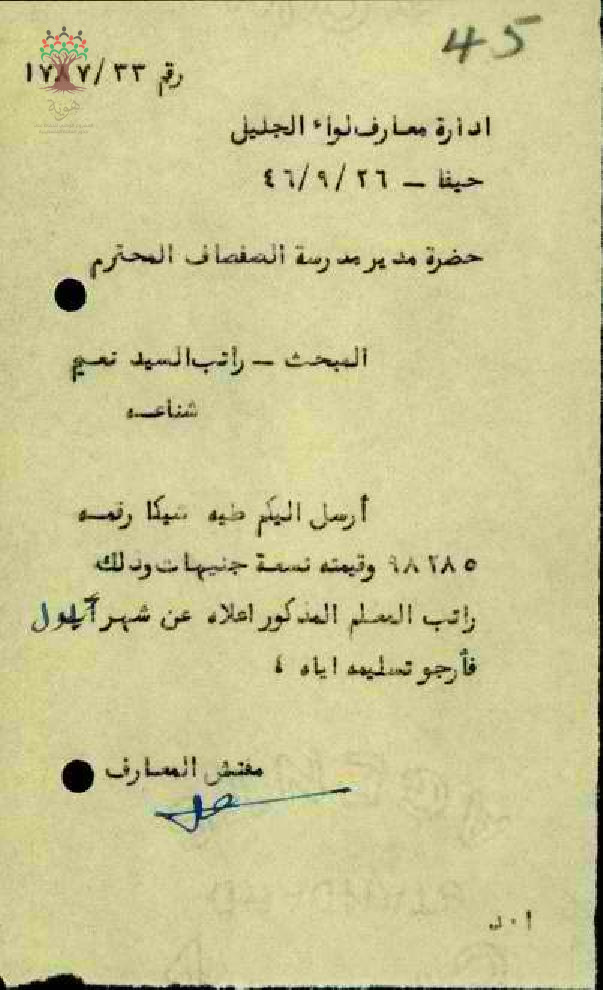 45
رقم ٣٣/٧/١٧
هوية
ادارة معارف لواء الجليل
حيفا – ٤٦/٩/٢٦
حضرة مدير مدرسة الصفصاف المحترم
المبحث – راتب السيد نعيم
شناعه
أرسل اليكم طيه شيكا رقمه
٩٨٢٨٥ وقيمته تسعة جنيهات وذلك
راتب المعلم المذكور اعلاه عن شهر أيلول
فأرجو تسليمه اياه ؛
مفتش المعارف